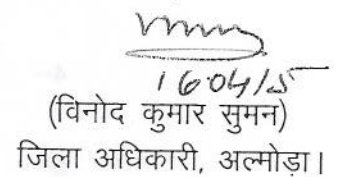 16.04/15
(विनोद कुमार सुमन)
जिला अधिकारी, अल्मोड़ा।